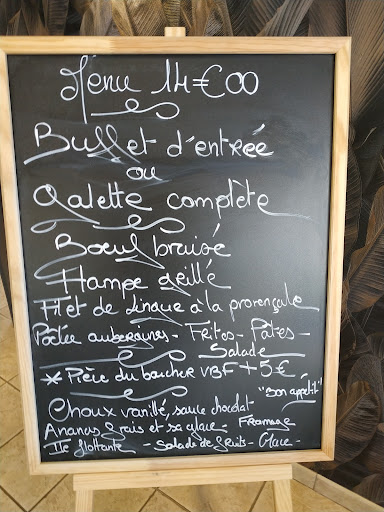 Menu 14€00
Buffet d'entrée
ou
Galette complète
Bœuf braisé
Hampe grillé
Filet de lingue à la provençale
Poêlée aubergines - Frites - Pâtes -
Salade
* Pièce du boucher VBF + 5€
"Bon appétit"
Choux vanillé, sauce chocolat
Ananas frais et sa glace - Fromage
Ile flottante - Salade de fruits - Glace -